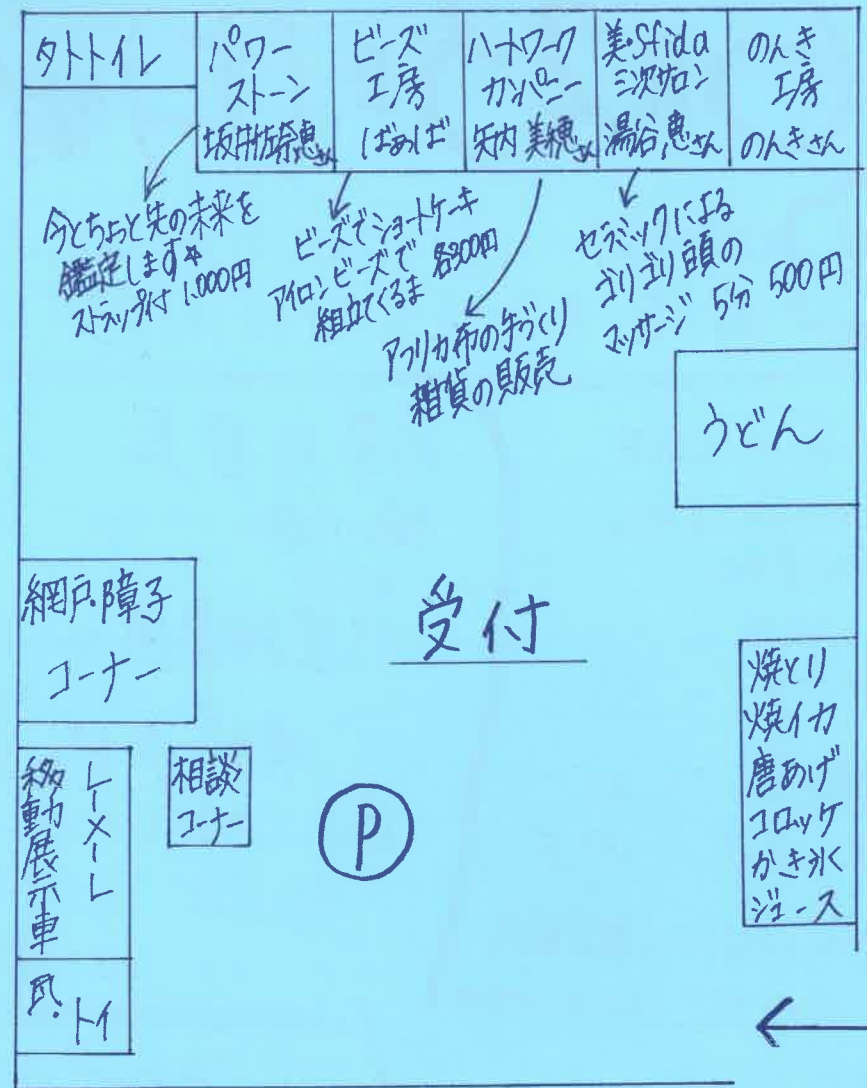 外トイレ
パワー
ストーン
坂井佐奈恵さん
ビーズ
工房
ばぁば
ハートワーク
カンパニー
矢内 美穂さん
美・Sfida
三次サロン
湯谷 恵さん
のんき
工房
のんきさん
今とちょっと先の未来を
鑑定します☆
ストラップ付 1,000円
ビーズでショートケーキ
アイロンビーズで
組立てくるま 各300円
アフリカ布の手づくり
雑貨の販売
セラミックによる
ゴリゴリ頭の
マッサージ 5分 500円
うどん
網戸・障子
コーナー
受付
焼とり
焼イカ
唐あげ
コロッケ
かき氷
ジュース
移動展示車
レーメーレ
相談
コーナー
P
瓦・トイ